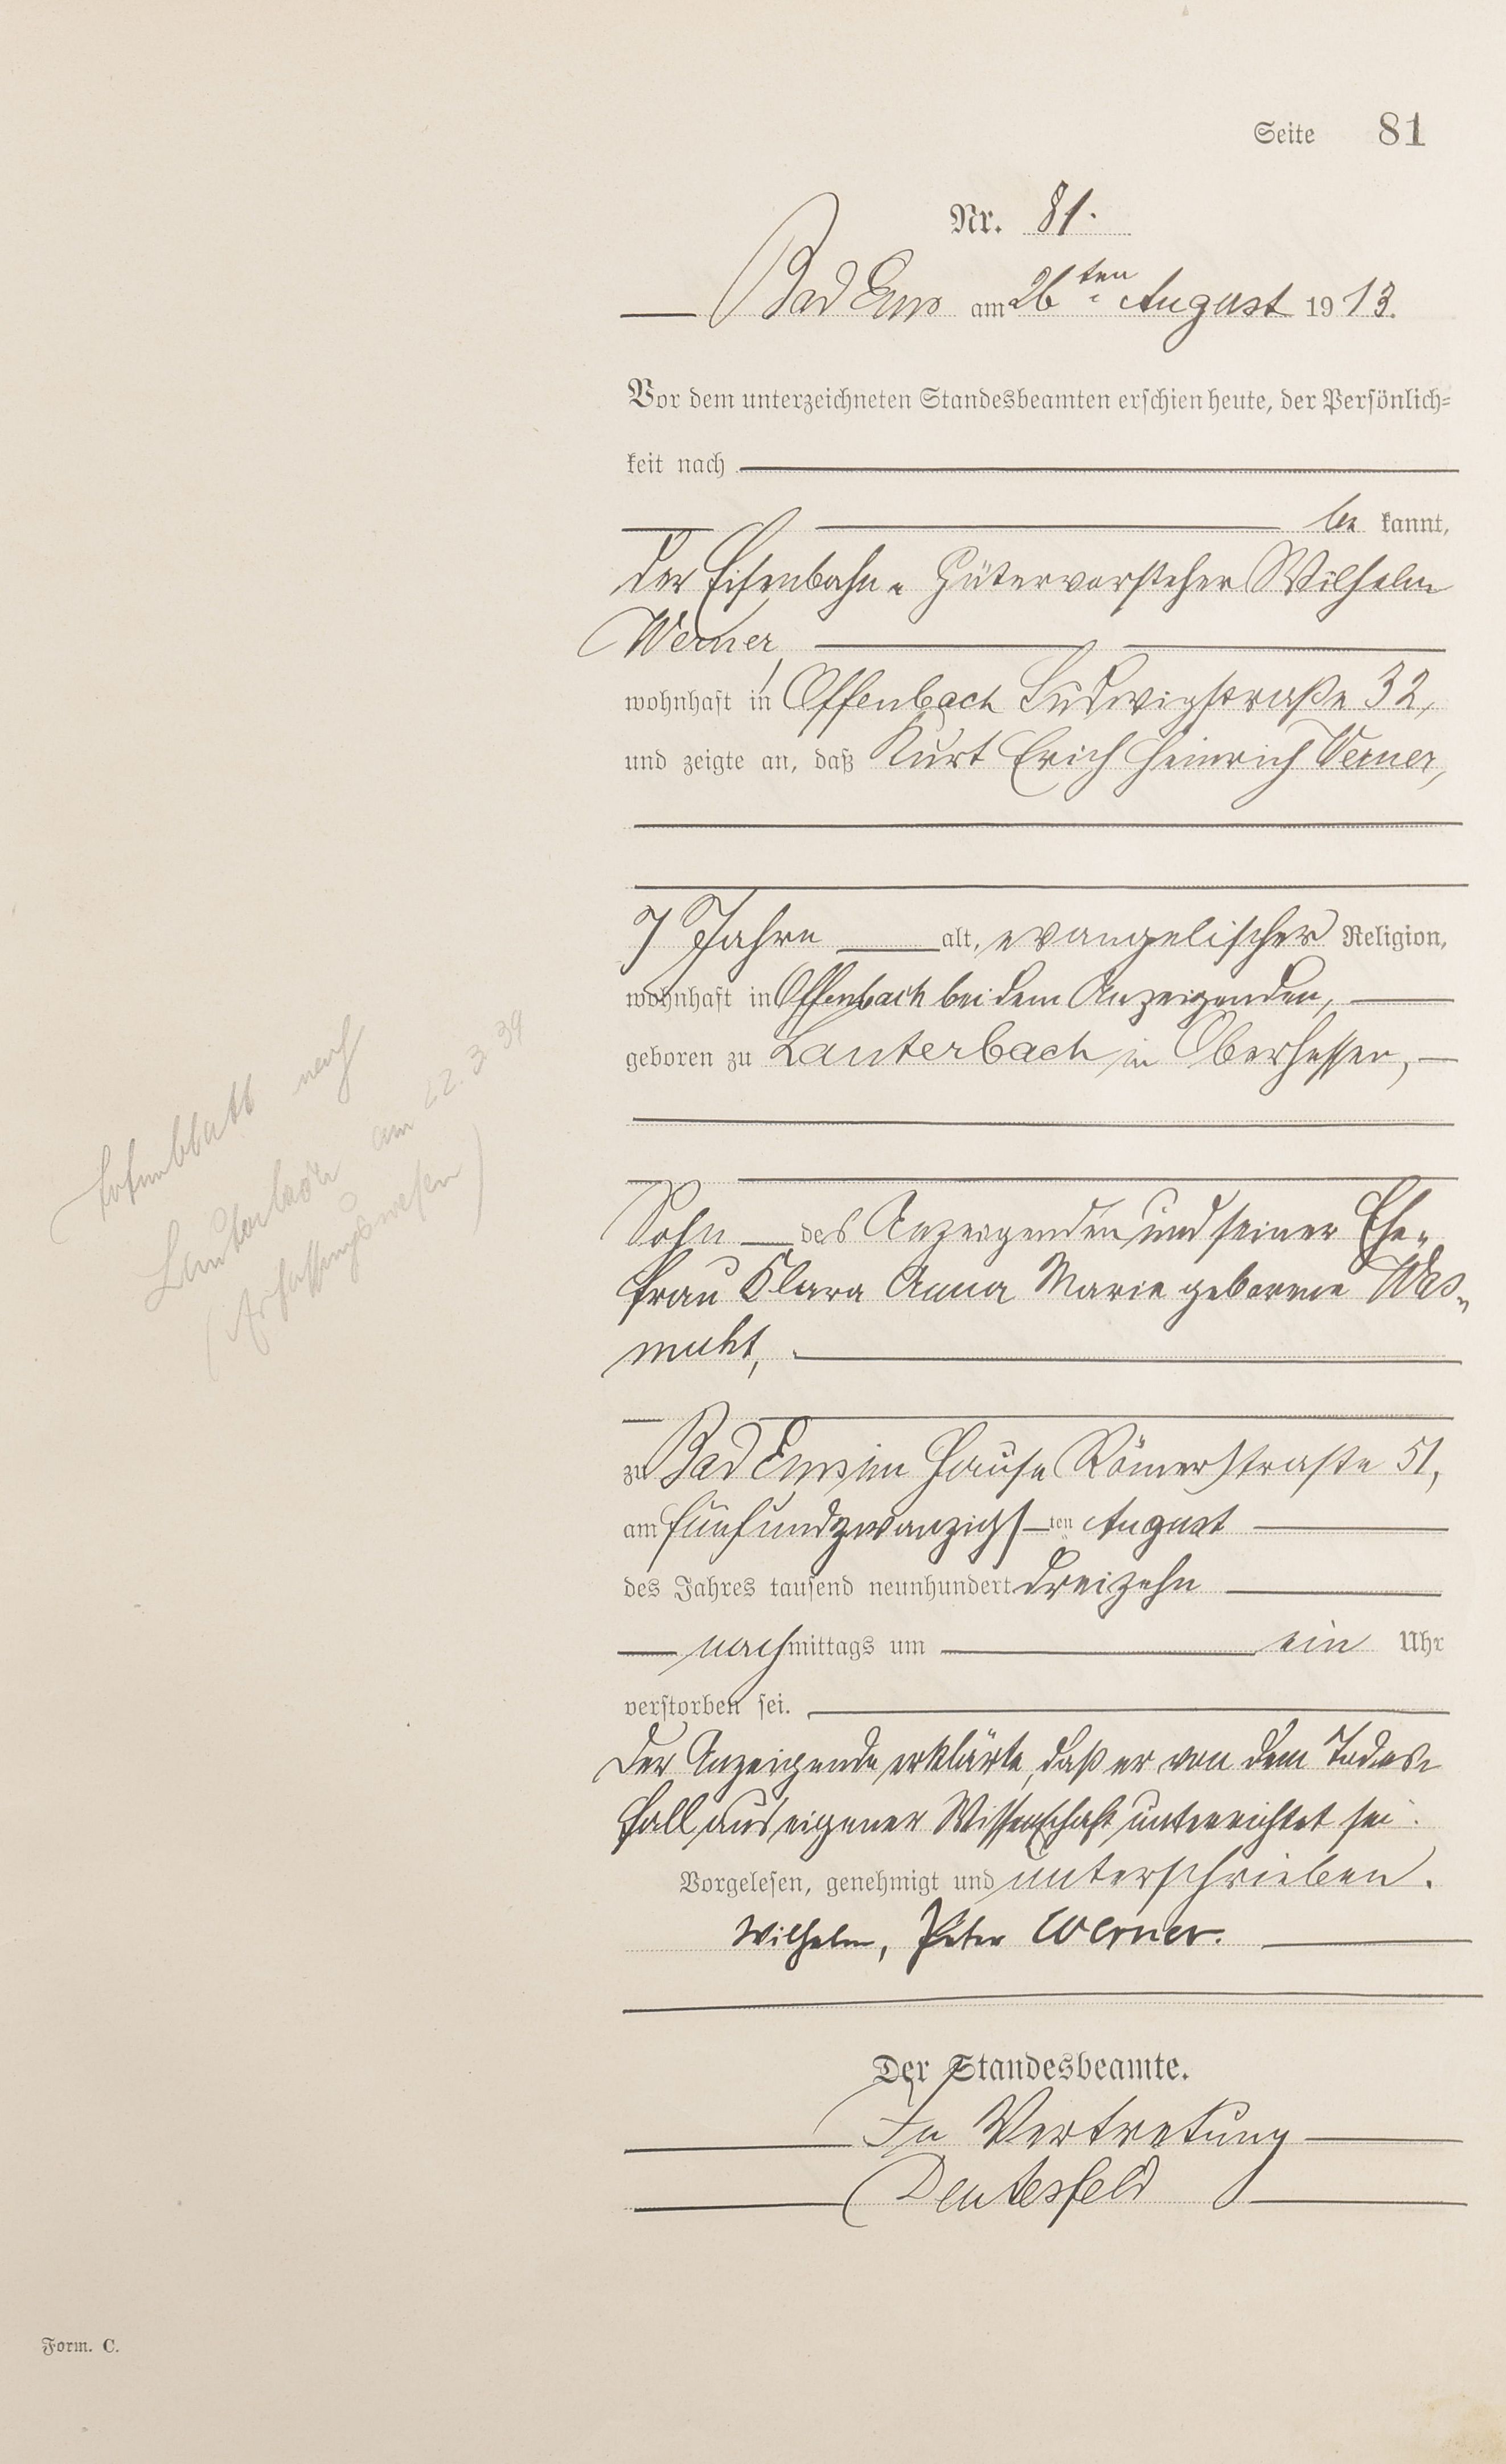 Seite 81
Nr. 81.
Bad Ems am 26ten August 1913.
Vor dem unterzeichneten Standesbeamten erschien heute, der Persönlich=
keit nach
be kannt,
der Eisenbahn-Gütervorsteher Wilhelm
Werner,
wohnhaft in Offenbach Ludwigstraße 32,
und zeigte an, daß Kurt Erich Heinrich Werner,
7 Jahre alt, evangelischer Religion,
wohnhaft in Offenbach bei dem Anzeigenden,
geboren zu Lauterbach in Oberhessen,
Sohn des Anzeigenden und seiner Ehe-
frau Klara Anna Marie geborene Was-
muht,
zu Bad Ems im Hause Römerstraße 51,
am fünfundzwanzigsten August
des Jahres tausend neunhundert dreizehn
nachmittags um ein Uhr
verstorben sei.
Der Anzeigende erklärte, daß er von dem Todes-
fall aus eigener Wissenschaft unterrichtet sei.
Vorgelesen, genehmigt und unterschrieben.
Wilhelm, Peter Werner.
Der Standesbeamte.
In Vertretung
Deutesfeld
nach
Lauterbach am 22.3.39
(Erfassungswesen)
Form. C.